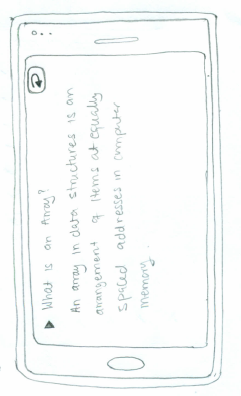 What is an Array?
An array in data structures is an
arrangement of items at equally
spaced addresses in computer
memory.